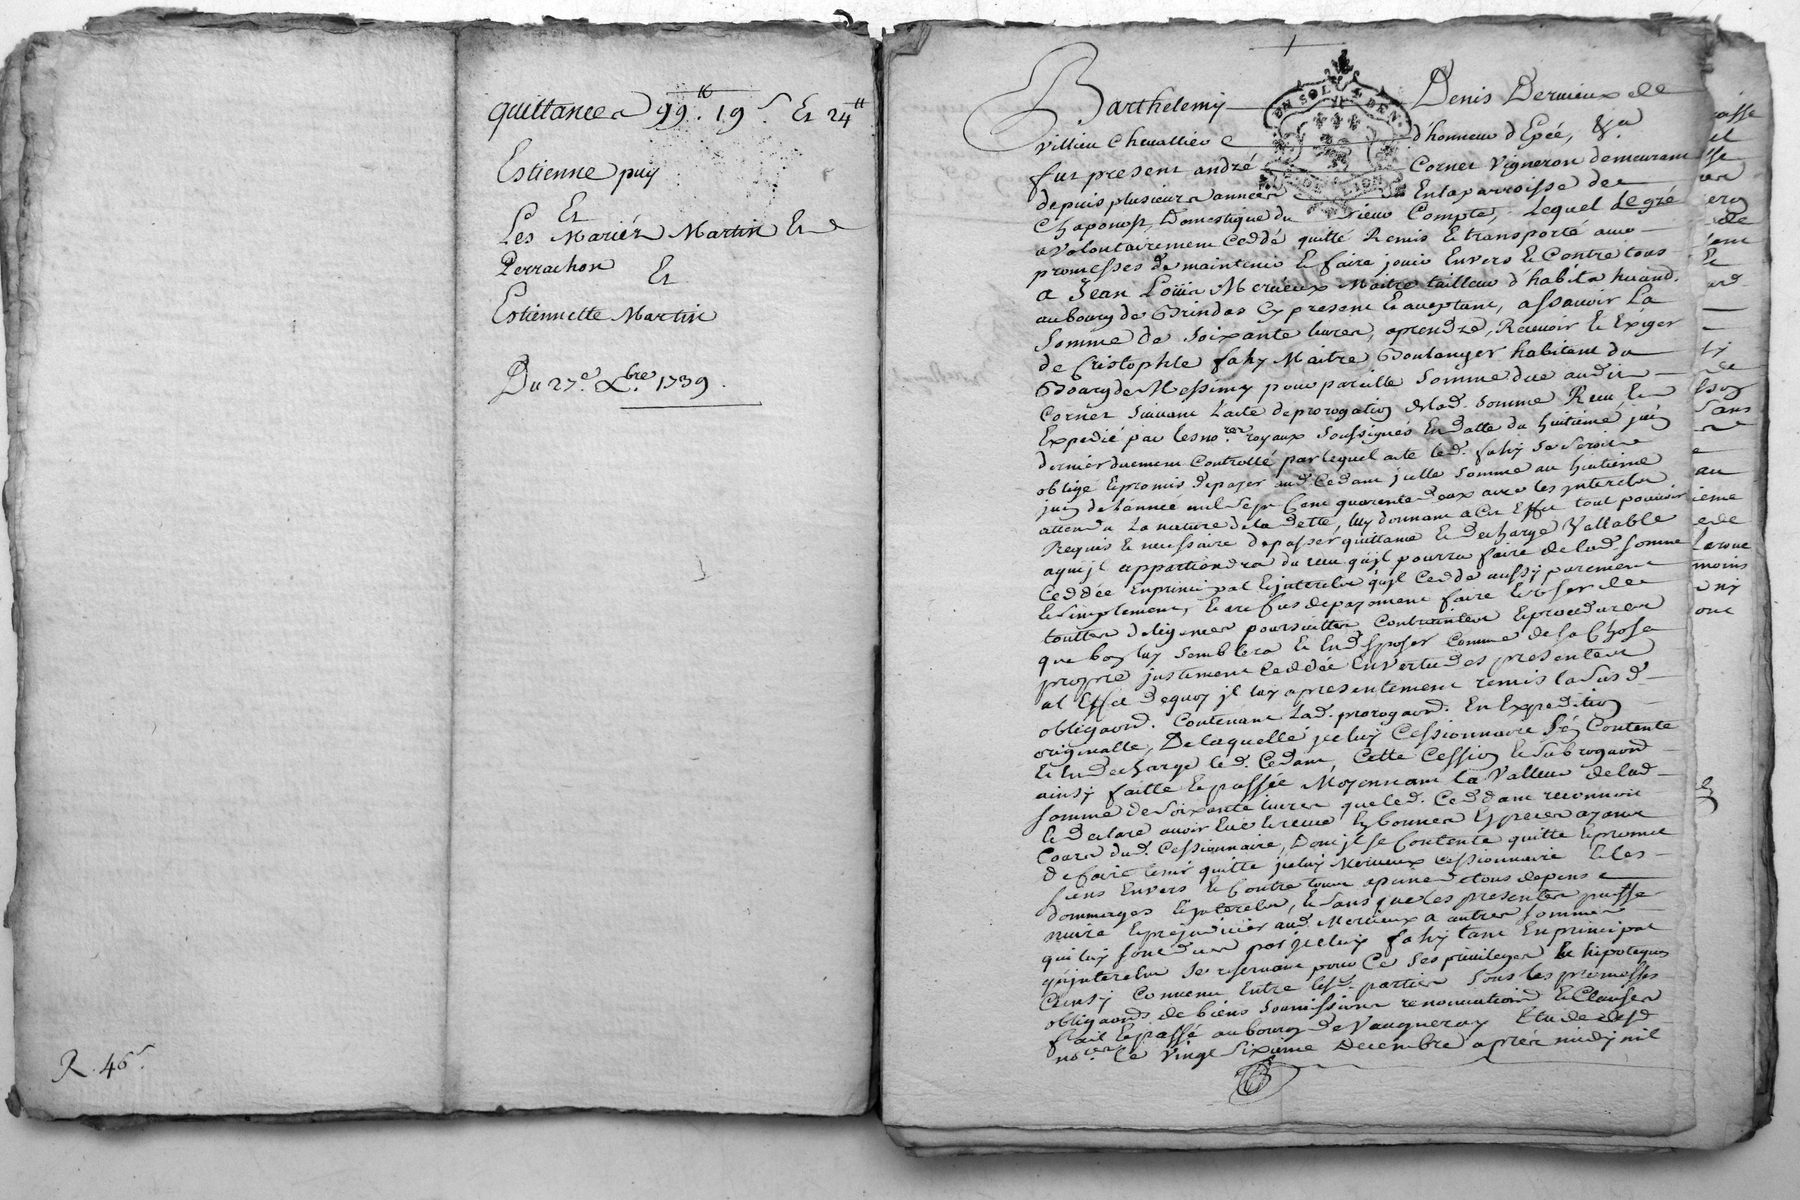 quittance 99.tt 19.s Et 24tt
Estienne puy
Et
Les Mariés Martin Et
Perrachon Et
Estiennette Martin
Du 27e. Xbre 1739.
R. 46s
EN SOL . 4 DEN.
G. DE LION
Barthelemy Denis Dervieux de
Villieu Chevallier d'honneur d'Epée, &a
fut present andré Cornet Vigneron demeurant
depuis plusieurs années En la parroisse de
Chaponost, Domestique du sieur Compte, Lequel de gré
a Volontairement Ceddé quitté Remis Et transporté avec
promesses de maintenir Et faire jouir Envers Et Contre tous
a Jean Loüis Mervieux Maitre tailleur d'habits
au bourg de Brindas Cy present Et aceptant, assavoir La
Somme de Soixante livres, aprendre, Recevoir Et Exiger
de Cristophle fahy Maitre Boulanger habitant du
Bourg de Messimy pour pareille Somme due audit
Cornet Suivant L'acte de prorogation de lad. Somme Receu Et
Expedié par les nores royaux Soussignés En datte du huitieme juin
dernier duement Controllé par lequel acte led. fahy Se Seroit
obligé Et promis de payer aud. Cedant jcelle Somme au huitieme
juin de l'année mil Sept Cent quarente deux avec les jnterets
attendu La nature de la dette, luy donnant a Cet Effet tout pouvoir
Requis Et necessaire de passer quittance Et decharge Vallable
a qui jl appartiendra du receu qu'jl pourra faire de lad. Somme
Ceddée En principal Et jnterets qu'jl Cedde aussy purement
Et Simplement, Et au refus de payement faire Et user de
touttes diligences poursuittes Contraintes Et procedures
que bon luy Semblera Et En disposer Comme de Sa Chose
propre justement Ceddée En vertu des presentes
a l'Effet de quoy jl luy a presentement remis la Susd.
obligaon. Contenant Lad. prorogaon. En Expedition
originalle, De laquelle jceluy Cessionnaire S'est Contenté
Et En decharge led. Cedant, Cette Cession Et Subrogaon
ainsy faitte Et passée Moyennant la Valleur de lad.
Somme de Soixante livres que led. Ceddant reconnoit
Et declare avoir Eüe Et receue En bonnes Especes ayant
Cours dud. Cessionnaire, Dont jl se Contente quitte Et promet
de faire tenir quitte jceluy Mervieux Cessionnaire Et les
siens Envers Et Contre tous a peine de tous depens
dommages Et jnterets, Et Sans que les presentes puisse
nuire Et prejudicier aud. Mervieux a autres Sommes
qui luy Sont dues par jceluy fahy tant En principal
qu'jnterets Se reservant pour Ce Ses privileges Et hipoteques
Ainsy Convenu Entre lesd. parties Sous les promesses
obligaons de biens Soumissions renonciations Et Clauses
fait Et passé au bourg de Vaugneray Etude desd.
nores Ce Vingt Sixieme Decembre aprés midy mil